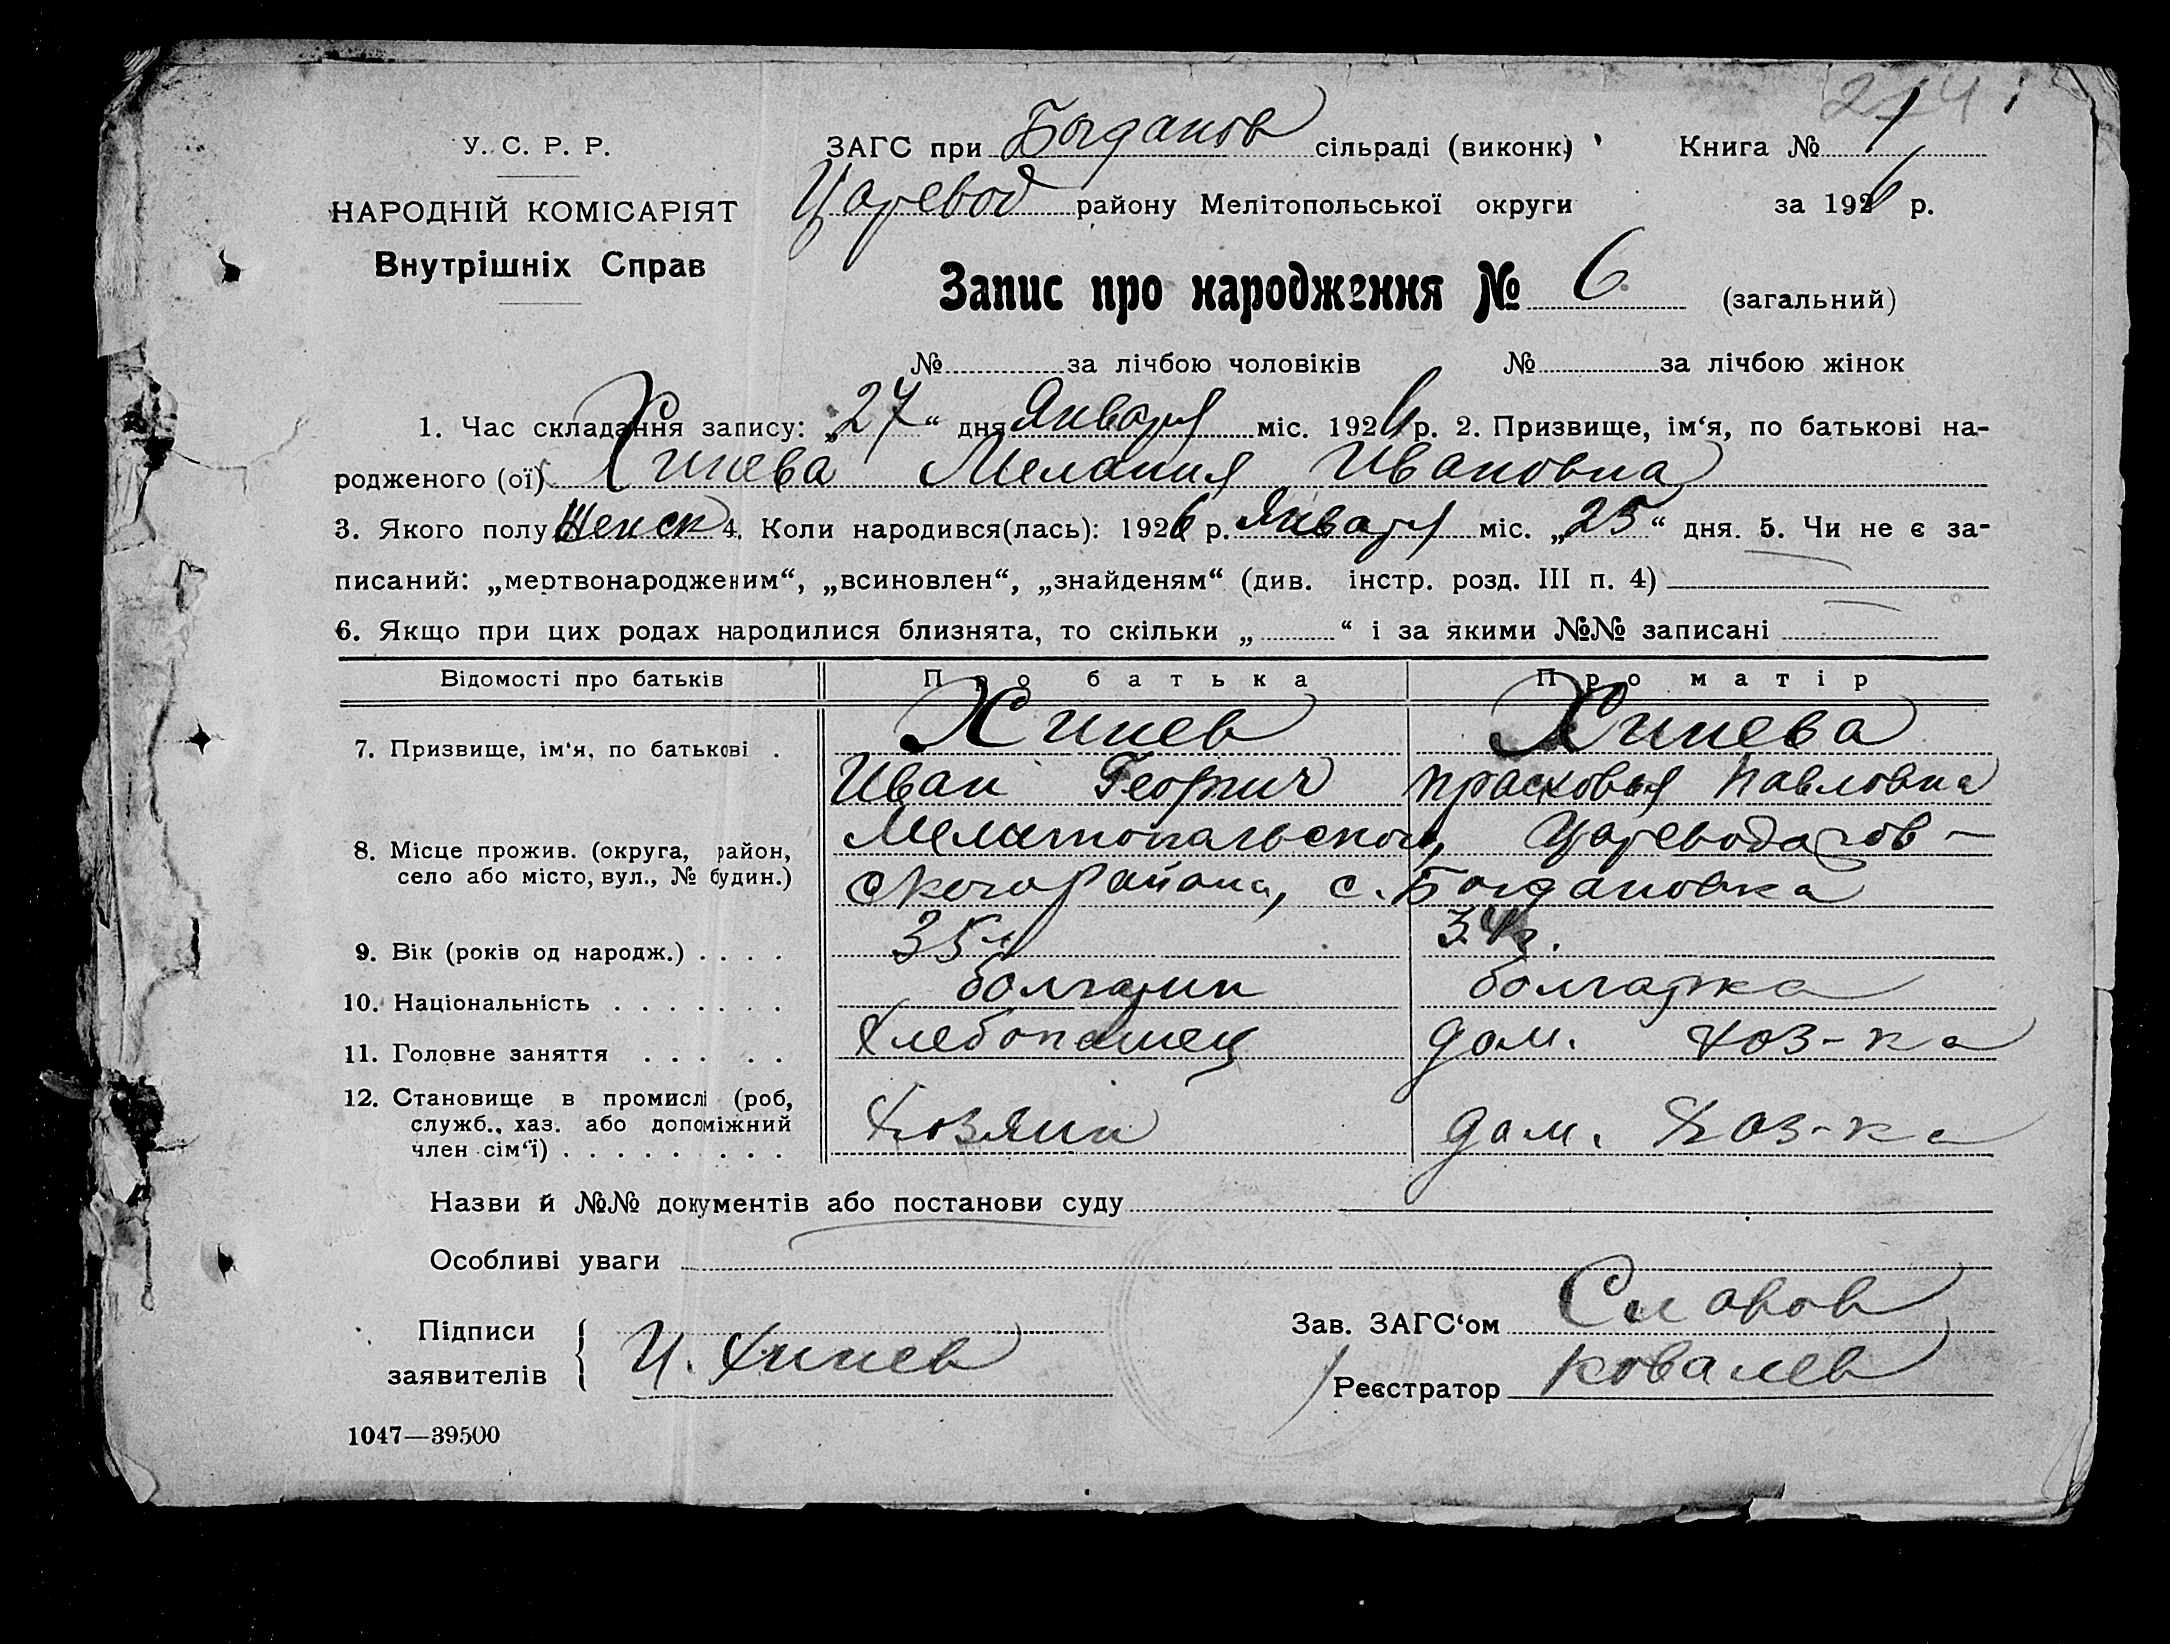 214
У. С. Р. Р.
НАРОДНІЙ КОМІСАРІЯТ
Внутрішніх Справ
ЗАГС при Богданов сільраді (виконк) Книга № 1
Царевод району Мелітопольської округи за 1926 р.
Запис про народження № 6 (загальний)
№ за лічбою чоловіків № за лічбою жінок
1. Час складання запису: „27“ дня Января міс. 1926 р. 2. Призвище, ім‘я, по батькові на-
родженого (ої) Хинева Мелания Ивановна
3. Якого полу Женск 4. Коли народився(лась): 1926 р. Января міс. „25“ дня. 5. Чи не є за-
писаний: „мертвонародженим“, „всиновлен“, „знайденям“ (див. інстр. розд. III п. 4)
6. Якщо при цих родах народилися близнята, то скільки „ “ і за якими №№ записані
Відомості про батьків Про батька Про матір
7. Призвище, ім‘я, по батькові . Хинев Хинева
Иван Георгич Прасковья Павловна
8. Місце прожив. (округа, район, Мелитопальскои, Цареводаров-
село або місто, вул., № будин.) ского района, с. Богдановка
9. Вік (років од народж.) . . . . 35 л 34 г.
10. Національність . . . . . . . болгарин болгарка
11. Головне заняття . . . . . Хлебопашец дом. хоз-ка
12. Становище в промислі (роб,
служб., хаз. або допоміжний Хозяин дом. Хоз-ка
член сім‘ї) . . . . . . . . .
Назви й №№ документів або постанови суду
Особливі уваги
Підписи
заявителів И. Хинев
Зав. ЗАГС‘ом Славов
Реєстратор Ковалев
1047—39500